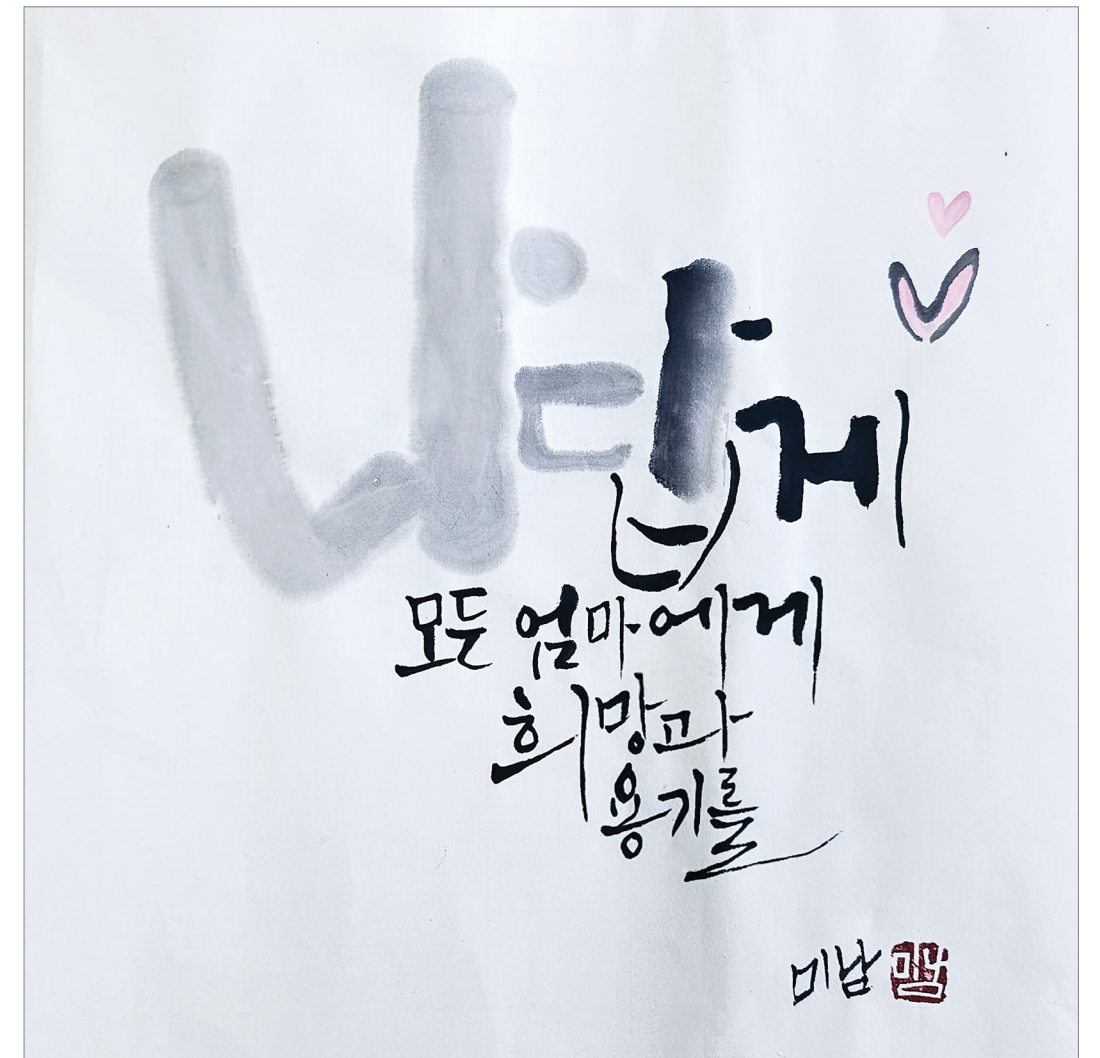 나답게
모든 엄마에게
희망과
용기를
미남
미남